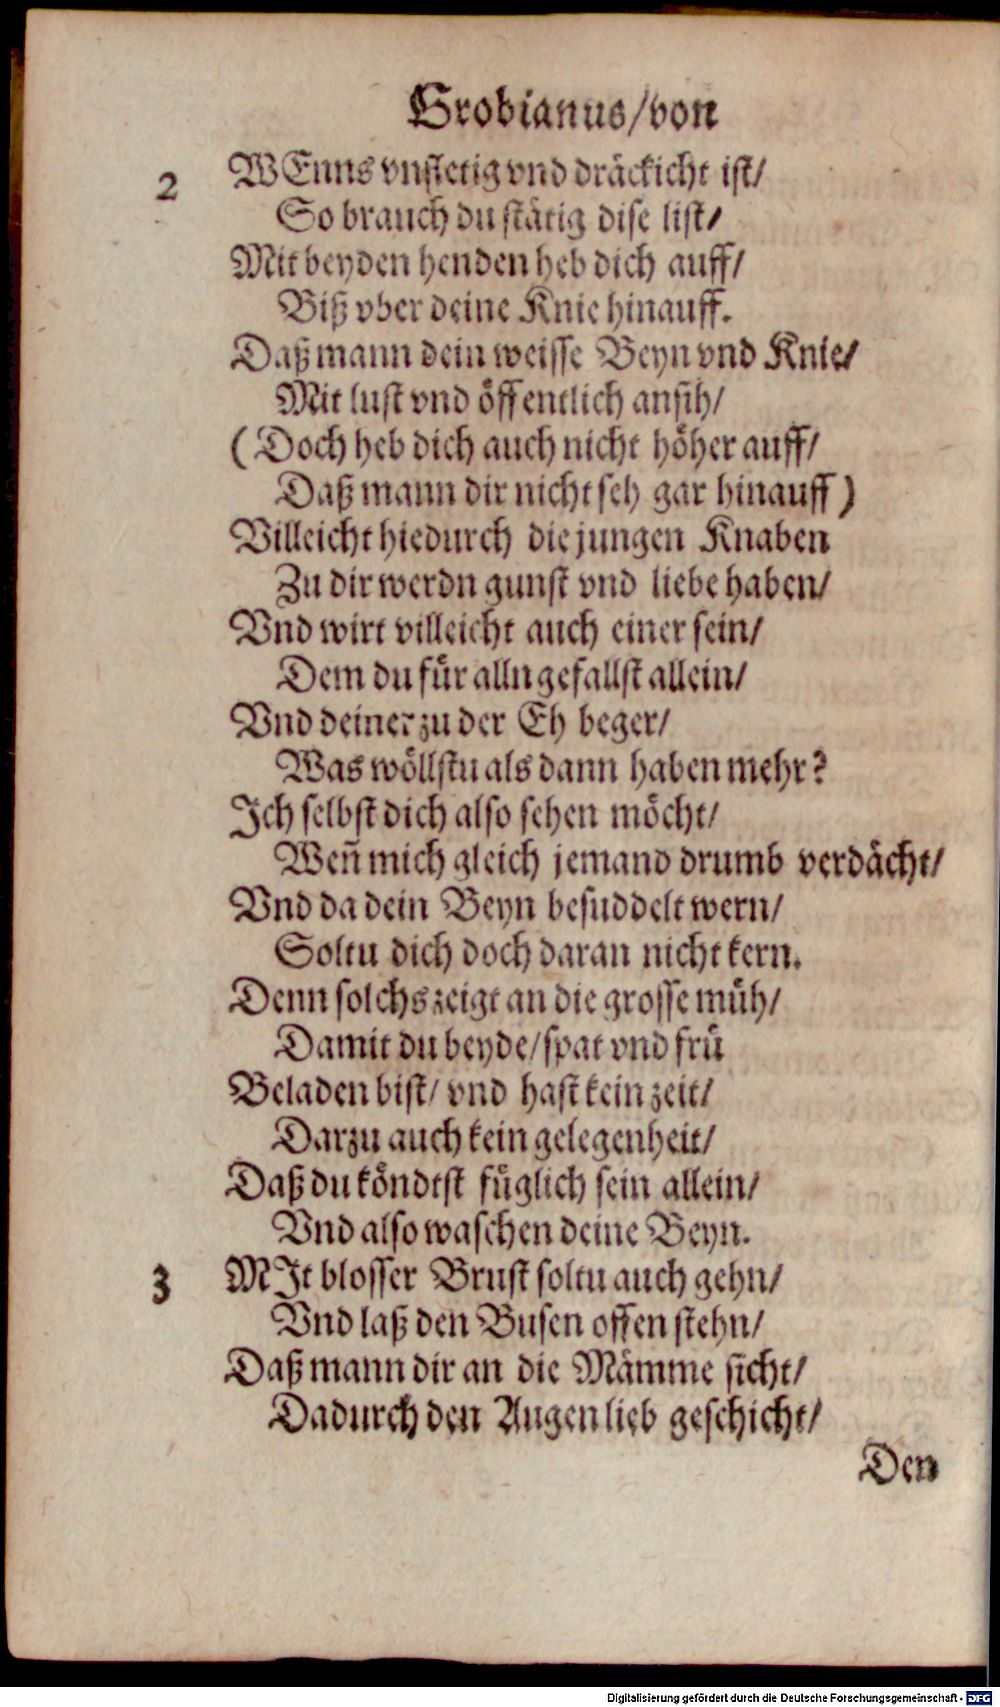 Grobianus/von
2 WEnns vnfletig vnd dräckicht ist/
So brauch du stätig dise list/
Mit beyden henden heb dich auff/
Biß vber deine Knie hinauff.
Daß mann dein weisse Beyn vnd Knie/
Mit lust vnd öffentlich ansih/
(Doch heb dich auch nicht höher auff/
Daß mann dir nicht seh gar hinauff)
Villeicht hiedurch die jungen Knaben
Zu dir werdn gunst vnd liebe haben/
Vnd wirt villeicht auch einer sein/
Dem du für alln gefallst allein/
Vnd deiner zu der Eh beger/
Was wöllstu als dann haben mehr?
Ich selbst dich also sehen möcht/
Weñ mich gleich jemand drumb verdächt/
Vnd da dein Beyn besuddelt wern/
Soltu dich doch daran nicht kern.
Denn solchs zeigt an die grosse müh/
Damit du beyde/spat vnd frü
Beladen bist/ vnd hast kein zeit/
Darzu auch kein gelegenheit/
Daß du köndtst füglich sein allein/
Vnd also waschen deine Beyn.
3 MIt blosser Brust soltu auch gehn/
Vnd laß den Busen offen stehn/
Daß mann dir an die Mämme sicht/
Dadurch den Augen lieb geschicht/
Den
Digitalisierung gefördert durch die Deutsche Forschungsgemeinschaft - DFG